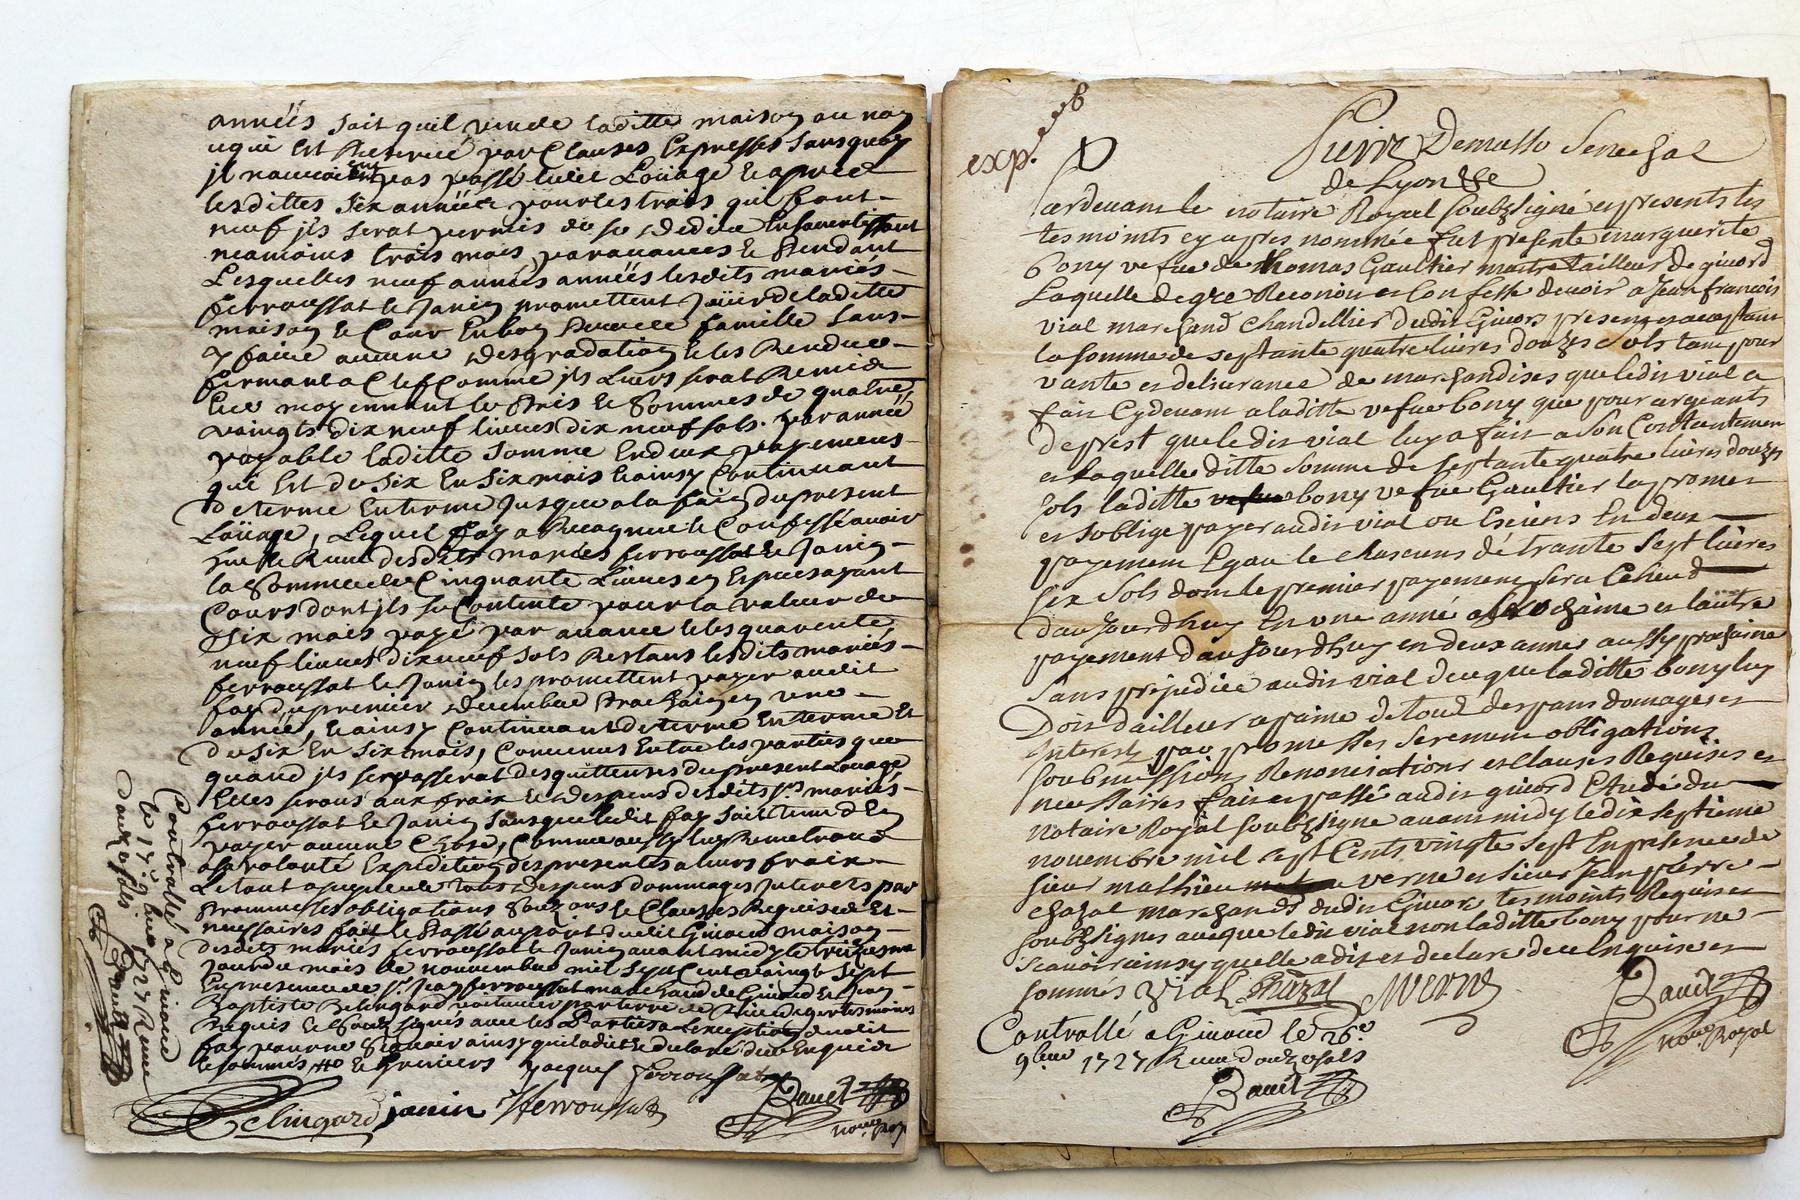 années soit quil vende laditte maison ou non
uqui Est Reservé par Clauses Expresses sans quoy
jl nauroient pas passé ledit Loüage Et apres
lesdittes six années pour les trois qui font
neuf jls serat permis de se dedire En savertissant
neamoins trois mois paravances Et Pendant
Lesquelles neuf années années lesdits mariés
ferroussat Et Janin promettent Joüir de laditte
maison Et Cour En bon pere de famille sans
y faire aucune desgradation Et les Rendre
fermant a Clef Comme jls Leurs serat Remis
Et ce moyennant le Pris Et Sommes de quatre
vaingts dix neuf livres dix neuf sols par année
payable laditte Somme En deux payemens
qui Est de Six En Six mois Et ainsy Continuant
de terme En terme Jusques a la fain du present
Loüage, Lequel fay a Recognu Et Confessé avoir
heu Et Receu desdits mariés ferroussat Et Janin
la Somme de Cinquante Livres en Espces ayant
Cours dont jls se Contente pour la valeur de
Six mois payé par avance Et les quarente
neuf livres dix neuf sols Restans lesdits mariés
ferroussat Et Janin les promettent payer audit
fay du premier decembre Prochain en une
année, Et ainsy Continuant de terme En terme Et
de Six En Six mois, Convenus Entre les parties que
quand jls se passerat des quittances du present Louage
Elles serons aux fraix Et despens desdits mariés
ferroussat Et Janin sans que ledit fay soit tenu d En
payer aucune Chose, Comme aussy luy Remetront
a sa volonté Expedition des presentes a leurs fraix
Le tout a peyne de tous despens dommages Jnterets par
Prommesses obligations Et Clauses Requises Et
nessaires fait Et Passé au port dudit Givord maison
desdits mariés ferroussat Et Janin avant midy le
jour du mois de nouvembre mil Sept Cent vaingt Sept
En presence de sr Jean ferroussat marchand de Givord Et Jean
Baptiste Belingard voiturier par terre de temoins
Requis Et Soubsignés avec les Parties a Lexception dudit
fay pour ne Scavoir ainsy quil a dit Et declaré de ce Enquis Et
Et sommés
jaques ferroussat
Belingard janin fferroussat
Bauet
nore Royal
Controllé a Givord
le 9bre 1727 Receu
douze sols
Bauet
exp.
Pierre Demasso Senechal
de Lyon &c
Pardevant le notaire Royal soubsigné es presents les
tesmoints cy apres nommée fut presente marguerite
Bony vefue de thomas Gaultier maitre tailleur de givord
Laquelle de gre Reconoit et Confesse devoir a Jean francois
vial marchand Chandellier dudit Givors present et aceptant
la somme de septante quatre livres douzes sols tant pour
vante et delivrance de marchandises que ledit vial a
fait Cydevant a laditte vefue bony que pour argeants
de prest que ledit vial luy a fait a son Contantement
et laquelle ditte somme de septante quatre livres douzes
sols laditte bony vefue Gaultier la promet
et soblige payer audit vial ou Esciens En deux
payement Egau et chascuns de trante sept livres
six sols dont le premier payement sera Eeheud
daujourdhuy En une anné et lautre
payement daujourdhuy en deux annes aussy prochaine
sans prejudice audit vial de ce que laditte bony luy
Dois dailleur a paine de toud despans domages et
Interests par promesses serement obligations
soubmissions Renonciations et Clauses Requises et
nessaires fait et passé audit givord Etude du
notaire Royal soubsigne avant midy le dix septieme
novembre mil sept Cents vingte sept En presence de
sieur mathieu verne et sieur Jean pierre
chazal marchands dudit Givors tesmoints Requis et
soubsignes avecque ledit vial non laditte bony pour ne
scavoir ainsy quelle a dit et declare de ce Enquise et
sommés Vial Chazal MVerne
Bauet
nore Royal
Controllé a Givord le 26e
9bre 1727 Receu douze sols
Bauet